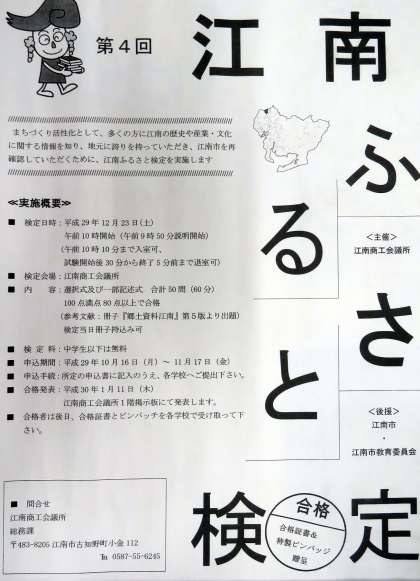 第4回
江南
ふるさと
検定
まちづくり活性化として、多くの方に江南の歴史や産業・文化
に関する情報を知り、地元に誇りを持っていただき、江南市を再
確認していただくために、江南ふるさと検定を実施します
≪実施概要≫
■ 検定日時：平成29年12月23日(土)
午前10時開始（午前9時50分説明開始）
（午前10時10分まで入室可、
試験開始後30分から終了5分前まで退室可）
■ 検定会場：江南商工会議所
■ 内　容：選択式及び一部記述式　合計50問（60分）
100点満点80点以上で合格
（参考文献：冊子『郷土資料江南』第5版より出題）
検定当日冊子持込み可
■ 検 定 料：中学生以下は無料
■ 申込期間：平成29年10月16日（月）～ 11月17日（金）
■ 申込手続：所定の申込書に記入のうえ、各学校へご提出下さい。
■ 合格発表：平成30年1月11日（木）
江南商工会議所1階掲示板にて発表します。
■ 合格者は後日、合格証書とピンバッチを各学校で受け取って下
さい。
＜主催＞
江南商工会議所
＜後援＞
江南市
・
江南市教育委員会
合格
合格証書&
特製ピンバッジ
贈呈
■ 問合せ
江南商工会議所
総務課
〒483-8205 江南市古知野町小金112
℡ 0587-55-6245